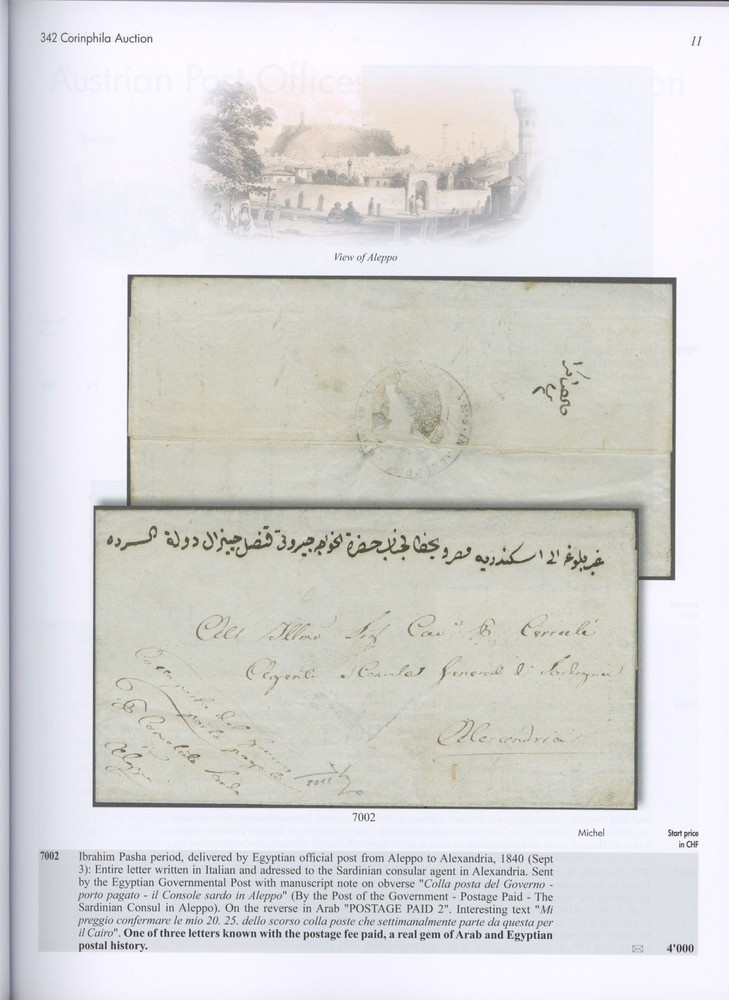 342 Corinphila Auction
11
View of Aleppo
الى اسكندريه
دولة
Consolato General di Sardegna
Alessandria
Colla posta del Governo
porto pagato
Il Console Sardo
in
Aleppo
7002
Michel
Start price
in CHF
7002 Ibrahim Pasha period, delivered by Egyptian official post from Aleppo to Alexandria, 1840 (Sept
3): Entire letter written in Italian and adressed to the Sardinian consular agent in Alexandria. Sent
by the Egyptian Governmental Post with manuscript note on obverse "Colla posta del Governo -
porto pagato - il Console sardo in Aleppo" (By the Post of the Government - Postage Paid - The
Sardinian Consul in Aleppo). On the reverse in Arab "POSTAGE PAID 2". Interesting text "Mi
preggio confermare le mio 20. 25. dello scorso colla poste che settimanalmente parte da questa per
il Cairo". One of three letters known with the postage fee paid, a real gem of Arab and Egyptian
postal history.
4'000